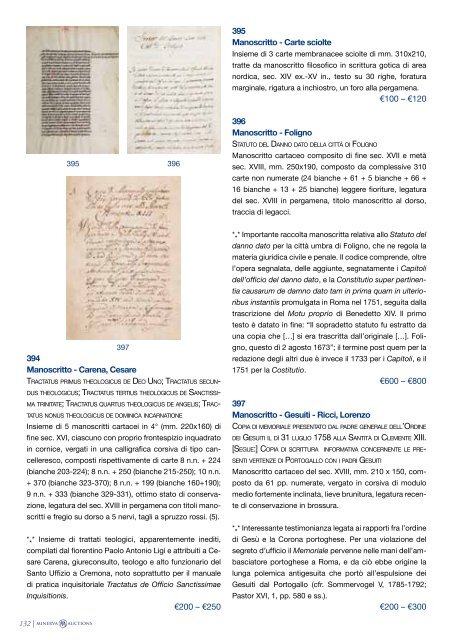 395
396
397
394
Manoscritto - Carena, Cesare
Tractatus primus theologicus de Deo Uno; Tractatus secun-
dus theologicus; Tractatus tertius theologicus de Sanctissi-
ma trinitate; Tractatus quartus theologicus de angelis; Trac-
tatus nonus theologicus de dominica incarnatione
Insieme di 5 manoscritti cartacei in 4° (mm. 220x160) di
fine sec. XVI, ciascuno con proprio frontespizio inquadrato
in cornice, vergati in una calligrafica corsiva di tipo can-
celleresco, composti rispettivamente di carte 8 n.n. + 224
(bianche 203-224); 8 n.n. + 250 (bianche 215-250); 10 n.n.
+ 370 (bianche 323-370); 8 n.n. + 199 (bianche 160+190);
9 n.n. + 333 (bianche 329-331), ottimo stato di conserva-
zione, legatura del sec. XVIII in pergamena con titoli mano-
scritti e fregio su dorso a 5 nervi, tagli a spruzzo rossi. (5).
*.* Insieme di trattati teologici, apparentemente inediti,
compilati dal fiorentino Paolo Antonio Ligi e attribuiti a Ce-
sare Carena, giureconsulto, teologo e alto funzionario del
Santo Uffizio a Cremona, noto soprattutto per il manuale
di pratica inquisitoriale Tractatus de Officio Sanctissimae
Inquisitionis.
€200 – €250
395
Manoscritto - Carte sciolte
Insieme di 3 carte membranacee sciolte di mm. 310x210,
tratte da manoscritto filosofico in scrittura gotica di area
nordica, sec. XIV ex.-XV in., testo su 30 righe, foratura
marginale, rigatura a inchiostro, un foro alla pergamena.
€100 – €120
396
Manoscritto - Foligno
Statuto del Danno dato della città di Foligno
Manoscritto cartaceo composito di fine sec. XVII e metà
sec. XVIII, mm. 250x190, composto da complessive 310
carte non numerate (24 bianche + 61 + 5 bianche + 66 +
16 bianche + 13 + 25 bianche) leggere fioriture, legatura
del sec. XVIII in pergamena, titolo manoscritto al dorso,
traccia di legacci.
*.* Importante raccolta manoscritta relativa allo Statuto del
danno dato per la città umbra di Foligno, che ne regola la
materia giuridica civile e penale. Il codice comprende, oltre
l'opera segnalata, delle aggiunte, segnatamente i Capitoli
dell'officio del danno dato, e la Constitutio super pertinen-
tia causarum de damno dato tam in prima quam in ulterio-
ribus instantiis promulgata in Roma nel 1751, seguita dalla
trascrizione del Motu proprio di Benedetto XIV. Il primo
testo è datato in fine: "Il sopradetto statuto fu estratto da
una copia che [...] si era trascritta dall'originale […]. Foli-
gno, questo di 2 agosto 1673"; il termine post quem per la
redazione degli altri due è invece il 1733 per i Capitoli, e il
1751 per la Costitutio.
€600 – €800
397
Manoscritto - Gesuiti - Ricci, Lorenzo
Copia di memoriale presentato dal padre generale dell'Ordine
dei Gesuiti il dì 31 luglio 1758 alla Santità di Clemente XIII.
[Segue:] Copia di scrittura informativa concernente le pre-
senti vertenze di Portogallo con i padri Gesuiti
Manoscritto cartaceo del sec. XVIII, mm. 210 x 150, com-
posto da 61 pp. numerate, vergato in corsiva di modulo
medio fortemente inclinata, lieve brunitura, legatura recen-
te di conservazione in brossura.
*.* Interessante testimonianza legata ai rapporti fra l'ordine
di Gesù e la Corona portoghese. Per una violazione del
segreto d'ufficio il Memoriale pervenne nelle mani dell'am-
basciatore portoghese a Roma, e da ciò ebbe origine la
lunga polemica antigesuita che portò all'espulsione dei
Gesuiti dal Portogallo (cfr. Sommervogel V, 1785-1792;
Pastor XVI, 1, pp. 580 e ss.).
€200 – €300
132 | MINERVA AUCTIONS